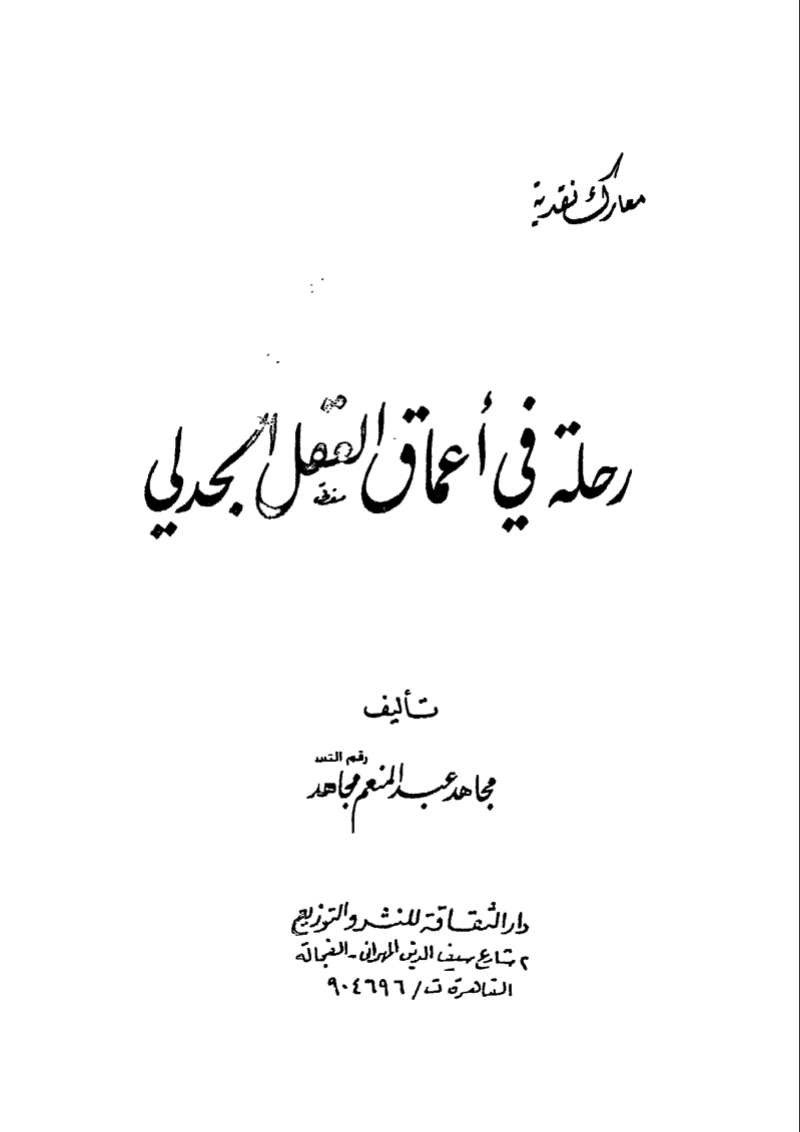 معارك نقدية
رحلة في أعماق العقل الجدلي
تأليف
رقم التس
مجاهد عبد المنعم مجاهد
دار الثقافة للنشر والتوزيع
٢ شارع سيف الدين المهراني - الفجالة
القاهرة ت / ٩٠٤٦٩٦